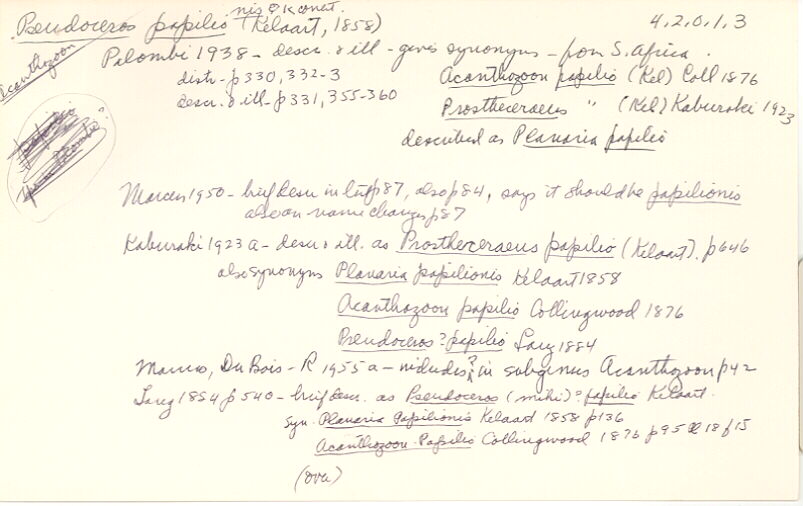 nis
Pseudoceros papilio (Kelaart, 1858)
4, 2, 0, 1, 3
Acanthozoon
Palombi 1938 - descr. & ill - gives synonyms - from S. Africa.
distr - p 330, 332-3
Acanthozoon papilio (Kel) Coll 1876
descr. & ill - p 331, 355-360
Prostheceraeus " (Kel) Kaburaki 1923
described as Planaria papilio
Marcus 1950 - brief descr in lit p 87, also p 84, says it should be papilionis
also on name change p 87
Kaburaki 1923 a - descr & ill. as Prostheceraeus papilio (Kelaart). p 646
also synonyms Planaria papilionis Kelaart 1858
Acanthozoon papilio Collingwood 1876
Pseudoceros ? papilio Lang 1884
Marcus, Du Bois - R 1955 a - includes ? in subgenus Acanthozoon p 42
Lang 1884 p 540 - brief descr. as Pseudoceros (mihi) ? papilio Kelaart.
Syn. Planaria Papilionis Kelaart 1858 p 136
Acanthozoon Papilio Collingwood 1876 p 95 18 f 15
(over)